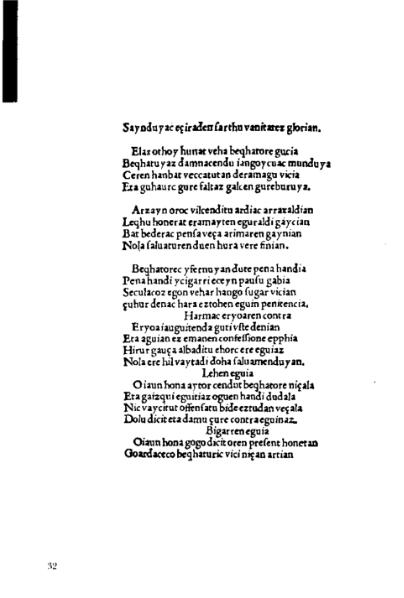 Saynduyac eçiraden sarthu vanitatez glorian.
Elas othoy hunat veha beqhatore gucia
Beqhatuyaz damnacendu iangoycuac munduya
Ceren hanbat veccatutan deramagu vicia
Eta guhaurc gure faltaz galcen gureburuya.
Arzayn oroc vilcenditu ardiac arratxaldian
Leqhu honerat eramayten eguraldi gaycian
Bat bederac pensa veça arimaren gaynian
Nola saluaturen duen hura vere finian.
Beqhatorec yfernuyan dute pena handia
Pena handi ycigarri eceyn pausu gabia
Seculacoz egon vehar hango sugar vician
çuhur denac hara eztohen eguin penitencia.
Harmac eryoaren contra
Eryoa iauguitenda gutivste denian
Eta aguian ez emanen confessione epphia
Hirur gauça albaditu ehorc ere eguiaz
Nola ere hil vaytadi doha saluamenduyan.
Lehen eguia
O iaun hona aytor cendut beqhatore niçala
Eta gaizqui eguitiaz oguen handi dudala
Nic vaycitut offensatu bide eztudan veçala
Dolu dicit eta damu çure contra eguinaz.
Bigarren eguia
Oiaun hona gogo dicit oren present honetan
Goardaceco beqhaturic vici niçan artian
32